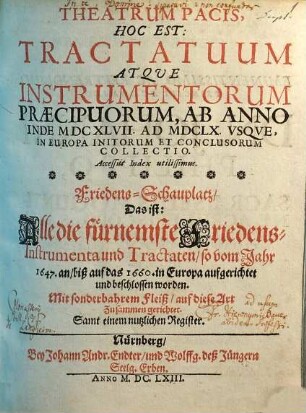 THEATRUM PACIS,
HOC EST:
TRACTATUUM
ATQUE
INSTRUMENTORUM
PRÆCIPUORUM, AB ANNO
INDE MDCXLVII. AD MDCLX. VSQVE,
IN EUROPA INITORUM ET CONCLUSORUM
COLLECTIO.
Accessit Index utilissimus.
Friedens-Schauplatz/
Das ist:
Alle die fürnemste Friedens-
Instrumenta und Tractaten/ so vom Jahr
1647. an/ biß auf das 1660. in Europa aufgerichtet
und beschlossen worden.
Mit sonderbahrem Fleiß/ auf diese Art
zusammen gerichtet.
Samt einem nutzlichen Register.
Nürnberg/
Bey Johann Andr. Endter/ und Wolffg. deß Jüngern
Seelg. Erben.
ANNO M. DC. LXIII.